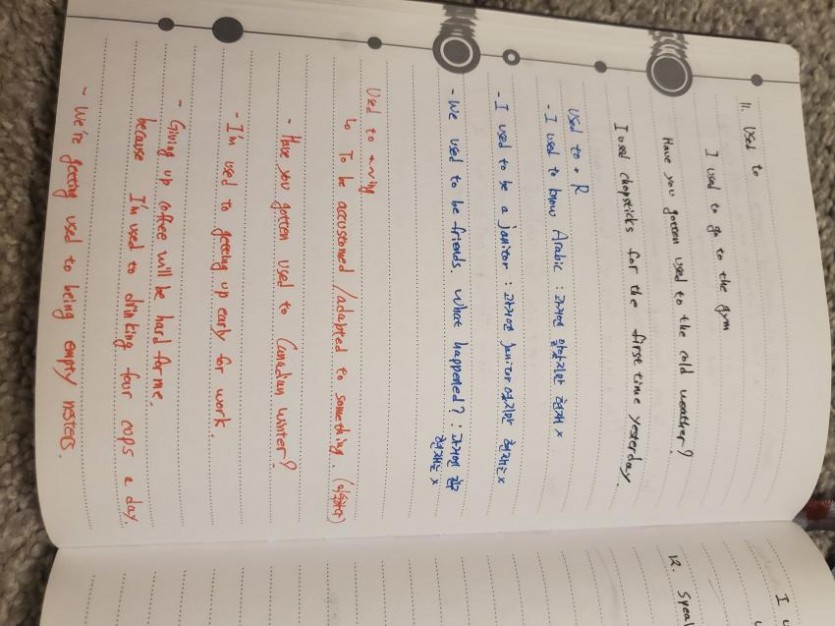 11. Used to
I used to go to the gym
Have you gotten used to the cold weather?
I used chopsticks for the first time yesterday.
Used to + R
- I used to know Arabic : 과거엔 알았지만 현재 x
- I used to be a janitor : 과거엔 janitor였지만 현재는 x
- We used to be friends. What happened? : 과거엔 친구
현재는 x
Used to + ing
↳ To be accustomed / adapted to something. (익숙하다)
- Have you gotten used to Canadian winter?
- I'm used to getting up early for work.
- Giving up coffee will be hard for me.
because I'm used to drinking four cops a day.
- We're getting used to being empty nesters.
I
12. Speak